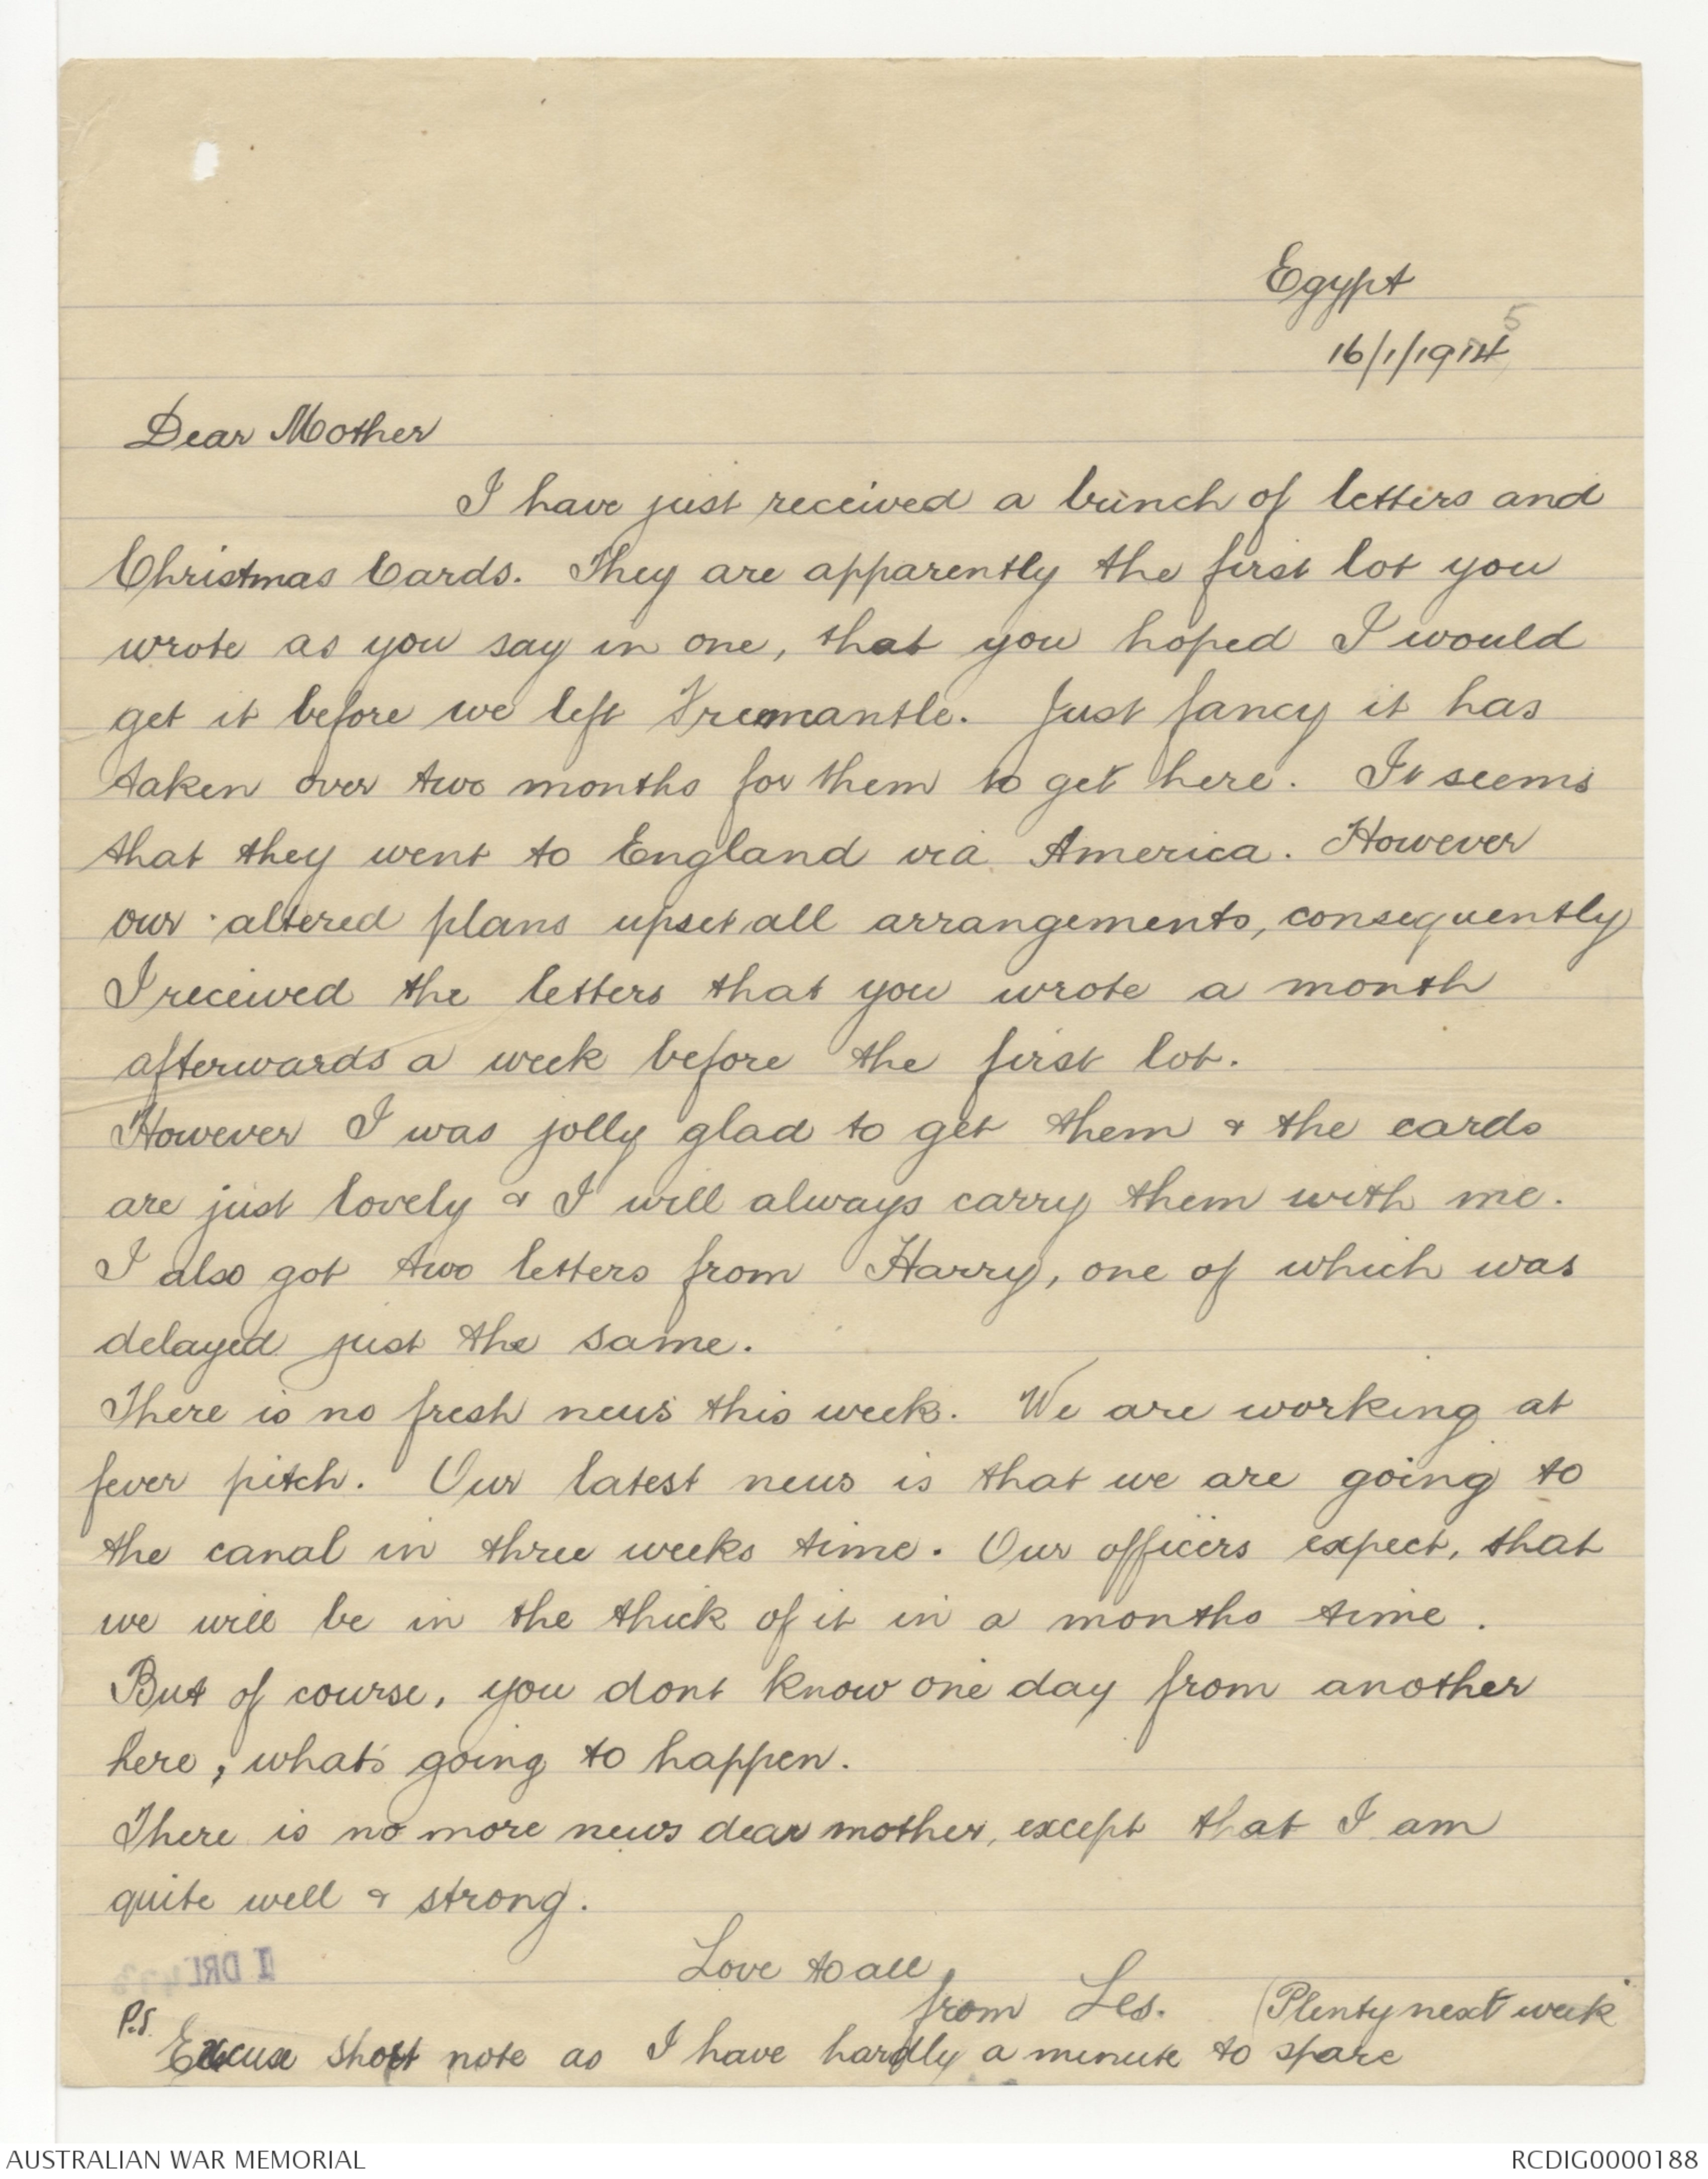 Egypt
16/1/1914 5
Dear Mother
I have just received a bunch of letters and
Christmas Cards. They are apparently the first lot you
wrote as you say in one, that you hoped I would
get it before we left Freemantle. Just fancy it has
taken over two months for them to get here. It seems
that they went to England via America. However
our altered plans upset all arrangements, consequently
I received the letters that you wrote a month
afterwards a week before the first lot.
However I was jolly glad to get them & the cards
are just lovely & I will always carry them with me.
I also got two letters from Harry, one of which was
delayed just the same.
There is no fresh news this week. We are working at
fever pitch. Our latest news is that we are going to
the canal in three weeks time. Our officers expect, that
we will be in the thick of it in a months time.
But of course, you dont know one day from another
here, what's going to happen.
There is no more news dear mother, except that I am
quite well & strong.
Love to all
from Les. (Plenty next week
P.S. Excuse short note as I have hardly a minute to spare
AUSTRALIAN WAR MEMORIAL
RCDIG0000188